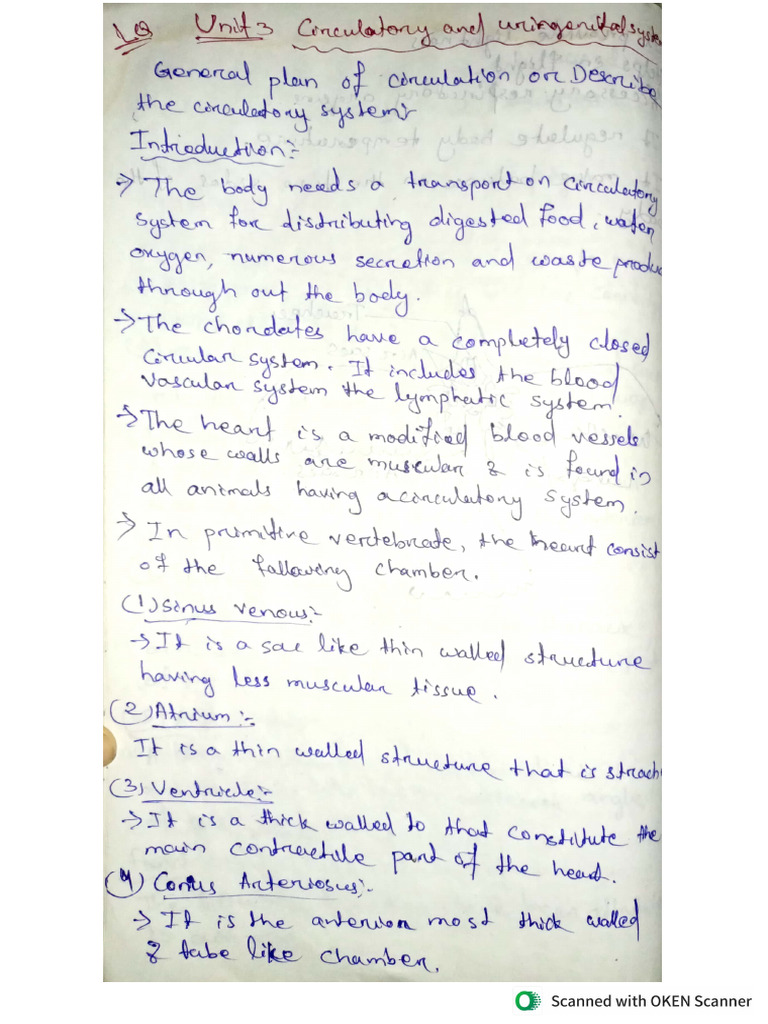 LQ Unit 3 Circulatory and uringenital syste
General plan of circulation or Describe
the circulatory system:-
Introduction:-
→ The body needs a transport on circulatory
system for distributing digested food, water
oxygen, numerous secretion and waste produc
through out the body.
→ The chordates have a completely closed
circular system. It includes the blood
vascular system the lymphatic system.
→ The heart is a modified blood vessels
whose walls are muscular & is found in
all animals having a circulatory system.
→ In primitive vertebrate, the heart consist
of the following chamber.
(1) Sinus venous:-
→ It is a sac like thin walled structure
having less muscular tissue.
(2) Atrium:-
It is a thin walled structure that is strach
(3) Ventricle:-
→ It is a thick walled to that constitute the
main contractile part of the heart.
(4) Conus Arteriosus:-
→ It is the anterior most thick walled
& tube like chamber.
Scanned with OKEN Scanner